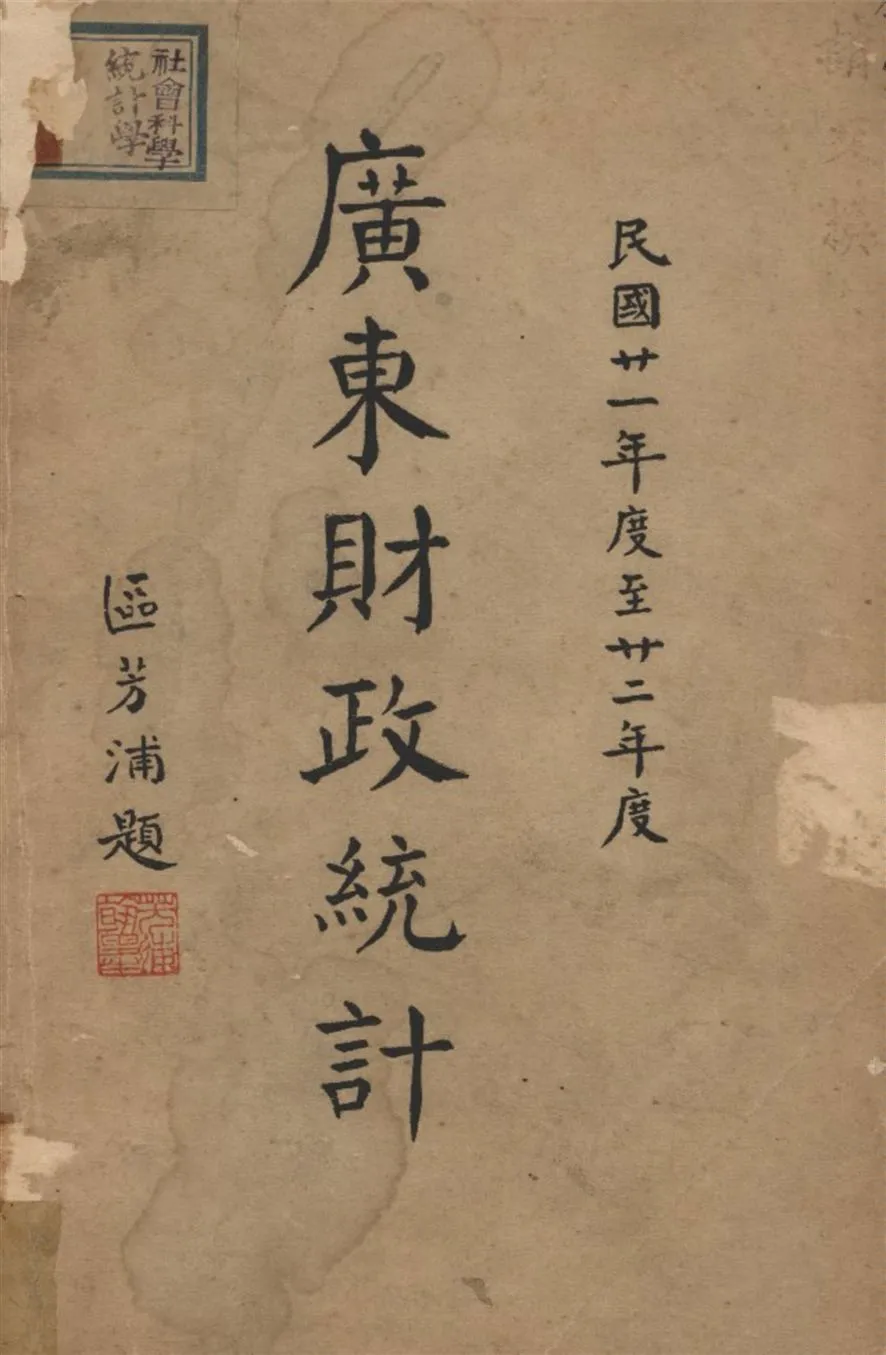 社會科學
統計學
民國廿一年度至廿二年度
廣東財政統計
區芳浦題